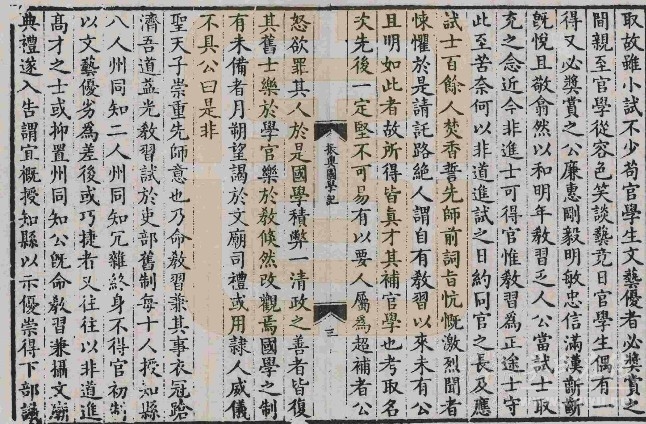 取故雖小試不少苟官學生文藝優者必獎賞之
間親至官學從容色笑談藝竟日官學生偶有一
得又必獎賞之公廉惠剛毅明敏忠信滿漢齗齗
旣悅且敬翕然以和明年教習乏人公當試士取
充之念近今非進士可得官惟教習爲正途士守
此至苦奈何以非道進試之日約同官之長及應
試士百餘人焚香誓先師前詞旨忼慨激烈聞者
悚懼於是請託路絕人謂自有教習以來未有公
且明如此者故所得皆眞才其補官學也考取名
次先後一定堅不可易有以要人屬爲超補者公
振興國學記
三
怒欲罪其人於是國學積弊一清政之善者皆復
其舊士樂於學官樂於教倐然改觀焉國學之制
有未備者月朔望謁於文廟司禮或用隷人威儀
不具公曰是非
聖天子崇重先師意也乃命教習兼其事衣冠蹌
濟吾道益光教習試於吏部舊制每十人授知縣
八人州同知二人州同知冗雜終身不得官初制
以文藝優劣爲差後或巧捷者又往往以非道進
高才之士或抑置州同知公旣命教習兼攝文廟
典禮遂入告謂宜槪授知縣以示優崇得下部議